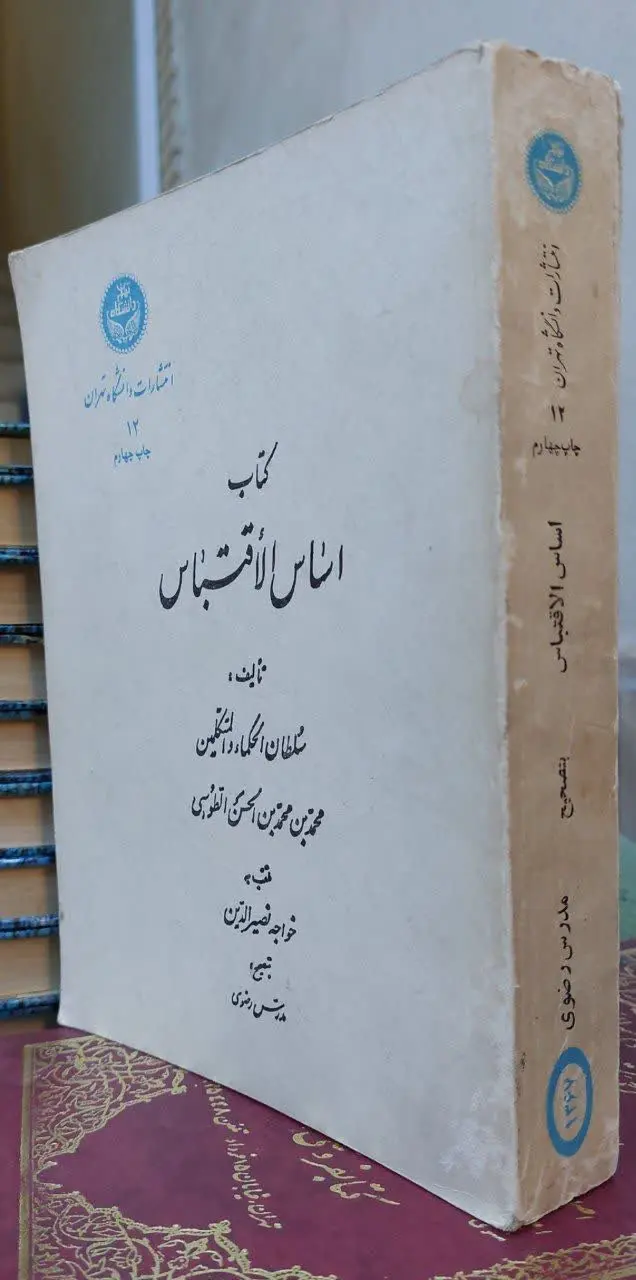 انتشارات دانشگاه تهران
۱۲
چاپ چهارم
کتاب
اساس الأقتباس
تألیف:
سلطان الحکماء و المتکلمین
محمد بن محمد بن الحسن الطوسی
ملقب به
خواجه نصیرالدین
بتصحیح:
مدرس رضوی
انتشارات دانشگاه تهران
۱۲
چاپ چهارم
اساس الاقتباس
بتصحیح
مدرس رضوی
۱۳۶۷